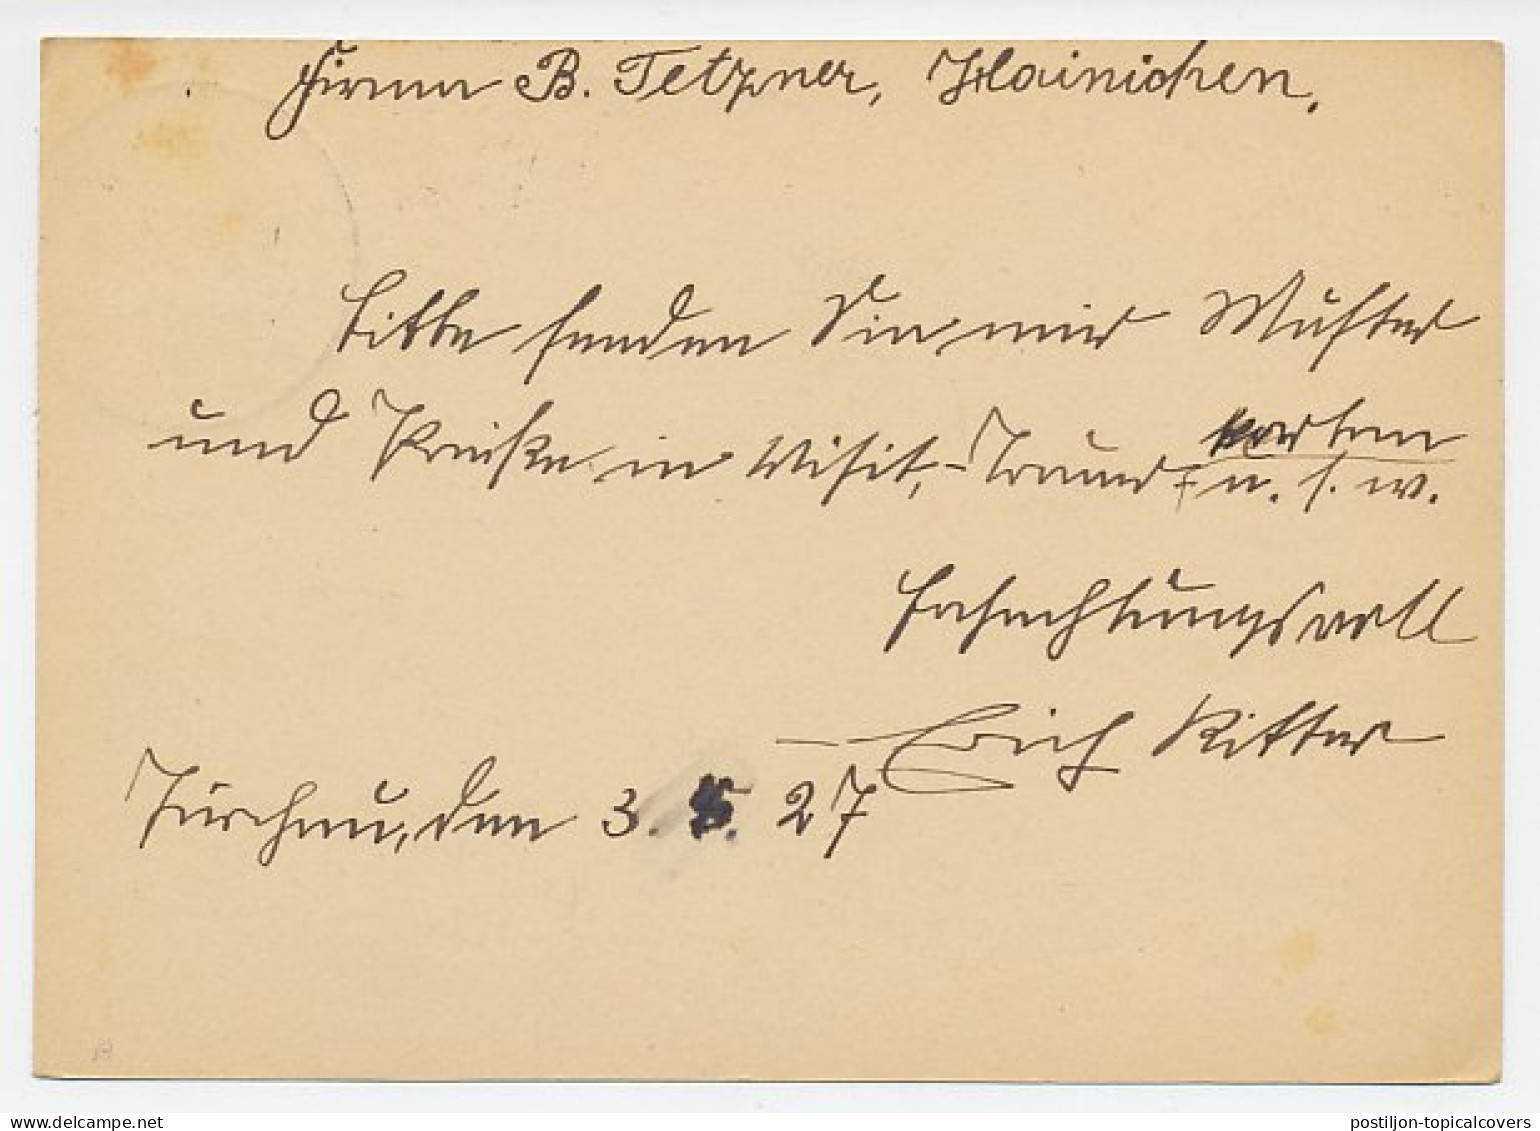 Firma B. Tetzner, Hainichen.
Bitte senden Sie mir Muster
und Preise in Visit,- Trauer- karten
u. s. w.
Hochachtungsvoll
Erich Ritter
den 3. 5. 27
postiljon-topicalcovers
delcampe.net